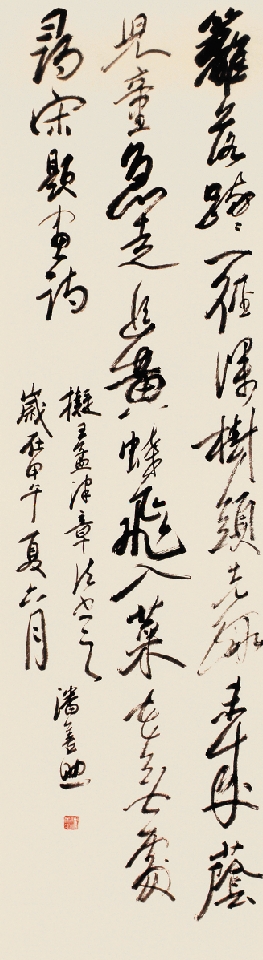 籬落踈〻一徑深樹頭花落未成蔭
兒童急走追黃蝶飛入菜花無處
尋宋題畫詩
擬王孟津章法書之
歲在甲午夏六月
潘善助